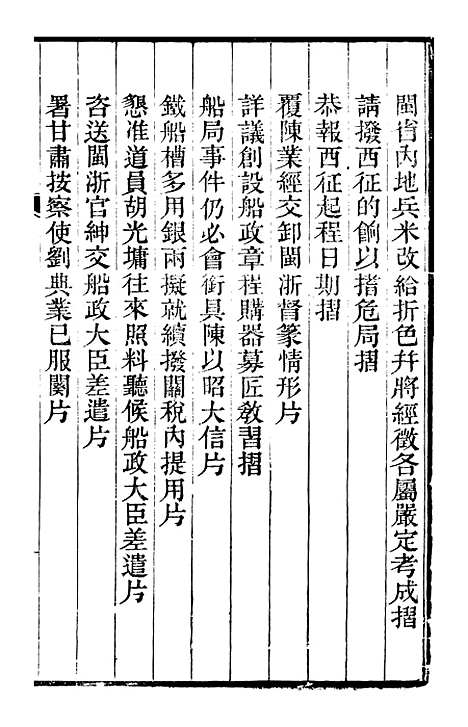 閩省內地兵米改給折色幷將經徵各屬嚴定考成摺
請撥西征的餉以揩危局摺
恭報西征起程日期摺
覆陳業經交卸閩浙督篆情形片
詳議創設船政章程購器募匠敎習摺
船局事件仍必會銜具陳以昭大信片
鐵船槽多用銀兩擬就續撥關稅內提用片
懇准道員胡光墉往來照料聽候船政大臣差遣片
咨送閩浙官紳交船政大臣差遣片
署甘肅按察使劉典業已服闋片